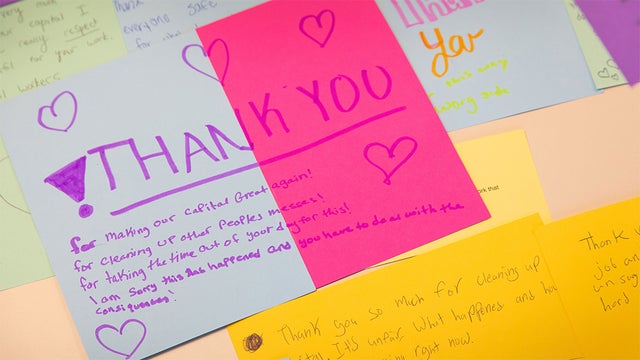 very much
capital I
really respect
ful for your work.
l workers
everyone safe
for
You
THANK YOU
for making our Capital Great again!
for cleaning up other Peoples messes!
for taking the time out of your day for this!
I am sorry this has happened and you have to deal with the
consiquences!
ork that
Thank you so much for cleaning up
ital. It's unfair what happenes and
right now.
Thank
job an
hard